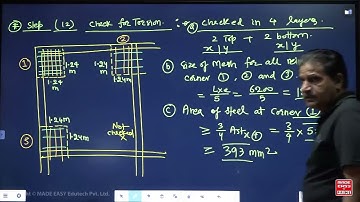 * Step (12) Check for Torsion :- * (a) checked in 4 layers.
2 Top + 2 bottom.
x | y x | y
(b) Size of Mesh for all
corner (1), (2) and (3)
= Lx/5 = 6200/5 = 1
(c) Area of steel at corner (1)
≥ 3/4 Astx(+) = 3/4 × 5
≥ 393 mm²
(1)
(2)
(3)
1.24 m
1.24 m
1.24 m
1.24 m
1.24 m
1.24m
Not checked
© MADE EASY Edutech Pvt. Ltd.